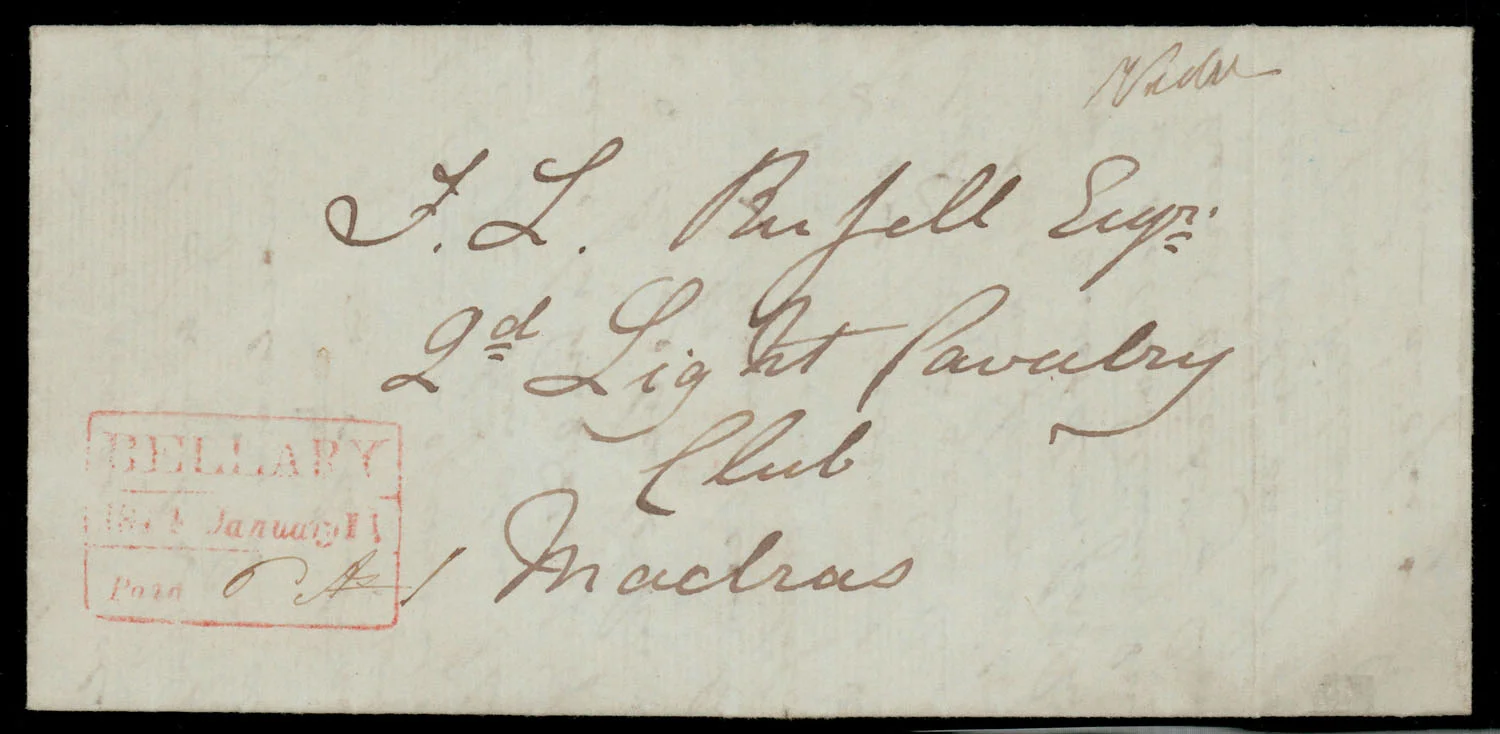 F. L. Ruſsell Esqr.
2d Light Cavalry
Club
Madras
BELLARY
January 11
Paid